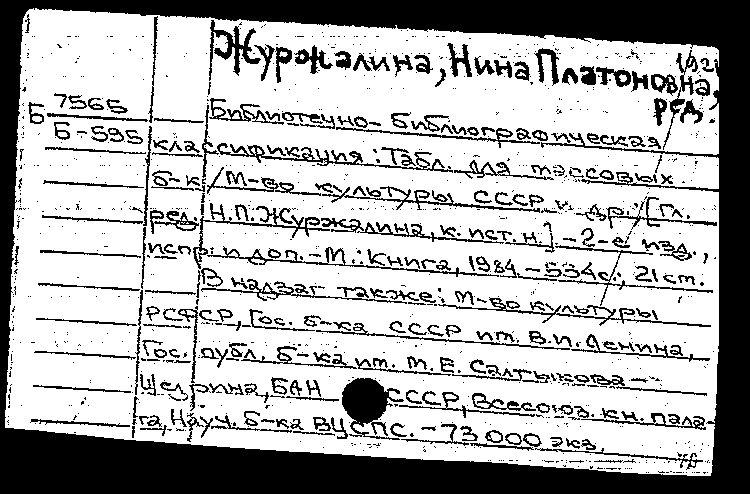 Журжалина, Нина Платоновна,
ред.
Б 7565
Б-595
Библиотечно-библиографическая
классификация: Табл. для массовых
б-к / М-во культуры СССР и др.; [Гл.
ред. Н.П. Журжалина, к. ист. н.] - 2-е изд.,
испр. и доп. - М.: Книга, 1984. - 534с.; 21 см.
В надзаг также: М-во культуры
РСФСР, Гос. б-ка СССР им. В.И. Ленина,
Гос. публ. б-ка им. М.Е. Салтыкова-
Щедрина, БАН СССР, Всесоюз. кн. пала-
та, Науч. б-ка ВЦСПС. - 73 000 экз.